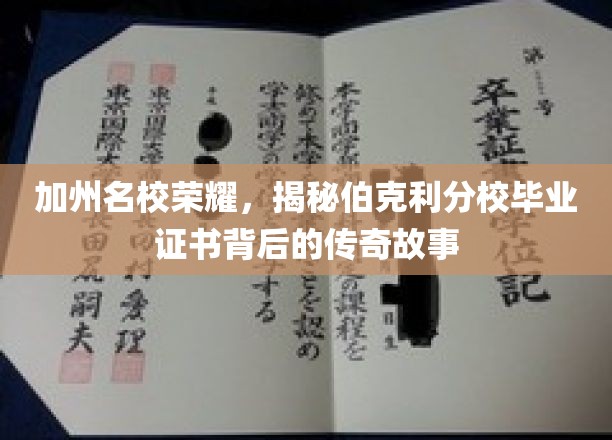 加州名校荣耀，揭秘伯克利分校毕业
证书背后的传奇故事
第 号
卒業証 学位記
本学商学部 定の課程を
修めて本学 ことを認め
学士(商学)の する
平成
日生
東京国際大学 長 田村愛理
東京国際大 長 田尻嗣夫